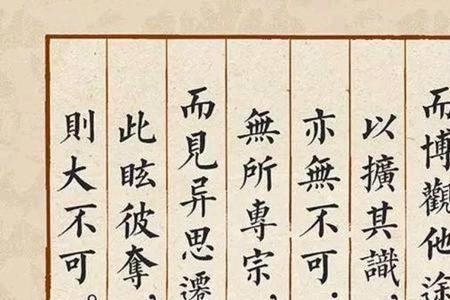 而博觀他途
以擴其識
亦無不可.
無所專宗，
而見异思遷
此眩彼奪，
則大不可。